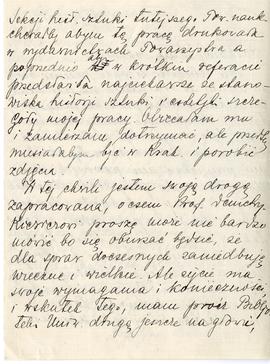 sekcji hist. sztuki tutejszego Tow. nauk.
chciałby abym tę pracę drukowała
w wydawnictwach Towarzystwa a
poprzednio aby w krótkim referacie
przedstawiła najciekawsze ze stano-
wiska historji sztuki i estetyki szcze-
góły mojej pracy. Obiecałam mu
i zamierzam dotrzymać, ale przedtem
musiałabym być w Krak. i porobić
zdjęcia.
W tej chwili jestem swoją drogą
zapracowana, o czem Prof.
proszę może nie bardzo
mówić bo się oburzać będzie, że
dla spraw doczesnych zaniedbuję
wieczne i wielkie. Ale życie ma
swoje wymagania i konieczności
i wskutek tego, mam prócz Bibljo-
teki Uniw. drugą jeszcze na głowie,